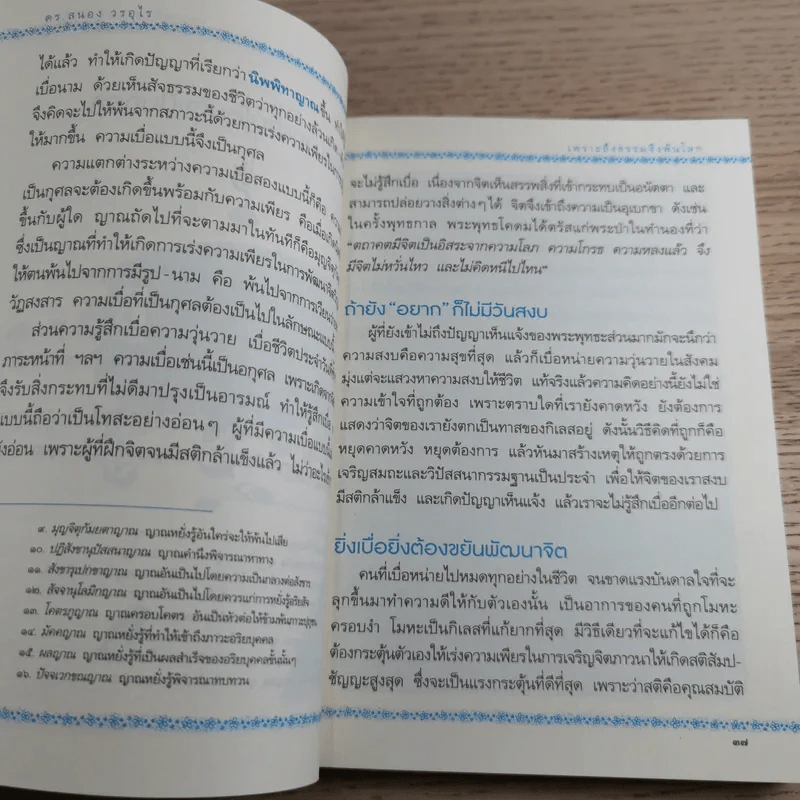 ดร.สนอง วรอุไร
ได้แล้ว ทำให้เกิดปัญญาที่เรียกว่า นิพพิทาญาณขึ้น
เบื่อนาม ด้วยเห็นสัจธรรมของชีวิตว่าทุกอย่างล้วนเกิด
จึงคิดจะไปให้พ้นจากสภาวะนี้ด้วยการเร่งความเพียรใน
ให้มากขึ้น ความเบื่อแบบนี้จึงเป็นกุศล
ความแตกต่างระหว่างความเบื่อสองแบบนี้ก็คือ
เป็นกุศลจะต้องเกิดขึ้นพร้อมกับความเพียร คือเมื่อเกิด
ขึ้นกับผู้ใด ญาณถัดไปที่จะตามมาในทันทีก็คือ
ซึ่งเป็นญาณที่ทำให้เกิดการเร่งความเพียรในการพัฒนา
ให้ตนพ้นไปจากการมีรูป-นาม คือ พ้นไปจากการเวียน
วัฏสงสาร ความเบื่อที่เป็นกุศลต้องเป็นไปในลักษณะ
ส่วนความรู้สึกเบื่อความวุ่นวาย เบื่อชีวิตประจำวัน
ภาระหน้าที่ ฯลฯ ความเบื่อเช่นนี้เป็นอกุศล เพราะเกิด
จึงรับสิ่งกระทบที่ไม่ดีมาปรุงเป็นอารมณ์ ทำให้รู้สึกเบื่อ
แบบนี้ถือว่าเป็นโทสะอย่างอ่อนๆ ผู้ที่มีความเบื่อแบบนี้
ยังอ่อน เพราะผู้ที่ฝึกจิตจนมีสติกล้าแข็งแล้ว ไม่ว่าอะไร
๙. มุญจิตุกัมยตาญาณ ญาณหยั่งรู้อันใคร่จะให้พ้นไปเสีย
๑๐. ปฏิสังขานุปัสสนาญาณ ญาณคำนึงพิจารณาหาทาง
๑๑. สังขารุเปกขาญาณ ญาณอันเป็นไปโดยความเป็นกลางต่อสังขาร
๑๒. สัจจานุโลมิกญาณ ญาณอันเป็นไปโดยควรแก่การหยั่งรู้อริยสัจ
๑๓. โคตรภูญาณ ญาณครอบโคตร อันเป็นหัวต่อให้ข้ามพ้นภาวะปุถุชน
๑๔. มัคคญาณ ญาณหยั่งรู้ที่ทำให้เข้าถึงภาวะอริยบุคคล
๑๕. ผลญาณ ญาณหยั่งรู้ที่เป็นผลสำเร็จของอริยบุคคลชั้นนั้นๆ
๑๖. ปัจจเวกขณญาณ ญาณหยั่งรู้พิจารณาทบทวน
เพราะถึงธรรมจึงพ้นโลก
จะไม่รู้สึกเบื่อ เนื่องจากจิตเห็นสรรพสิ่งที่เข้ากระทบเป็นอนัตตา และ
สามารถปล่อยวางสิ่งต่างๆ ได้ จิตจึงเข้าถึงความเป็นอุเบกขา ดังเช่น
ในครั้งพุทธกาล พระพุทธโคดมได้ตรัสแก่พระป่าในทำนองที่ว่า
"ตถาคตมีจิตเป็นอิสระจากความโลภ ความโกรธ ความหลงแล้ว จึง
มีจิตไม่หวั่นไหว และไม่คิดหนีไปไหน"
ถ้ายัง "อยาก" ก็ไม่มีวันสงบ
ผู้ที่ยังเข้าไม่ถึงปัญญาเห็นแจ้งของพระพุทธะส่วนมากมักจะนึกว่า
ความสงบคือความสุขที่สุด แล้วก็เบื่อหน่ายความวุ่นวายในสังคม
มุ่งแต่จะแสวงหาความสงบให้ชีวิต แท้จริงแล้วความคิดอย่างนี้ยังไม่ใช่
ความเข้าใจที่ถูกต้อง เพราะตราบใดที่เรายังคาดหวัง ยังต้องการ
แสดงว่าจิตของเรายังตกเป็นทาสของกิเลสอยู่ ดังนั้นวิธีคิดที่ถูกก็คือ
หยุดคาดหวัง หยุดต้องการ แล้วหันมาสร้างเหตุให้ถูกตรงด้วยการ
เจริญสมถะและวิปัสสนากรรมฐานเป็นประจำ เพื่อให้จิตของเราสงบ
มีสติกล้าแข็ง และเกิดปัญญาเห็นแจ้ง แล้วเราจะไม่รู้สึกเบื่ออีกต่อไป
ยิ่งเบื่อยิ่งต้องขยันพัฒนาจิต
คนที่เบื่อหน่ายไปหมดทุกอย่างในชีวิต จนขาดแรงบันดาลใจที่จะ
ลุกขึ้นมาทำความดีให้กับตัวเองนั้น เป็นอาการของคนที่ถูกโมหะ
ครอบงำ โมหะเป็นกิเลสที่แก้ยากที่สุด มีวิธีเดียวที่จะแก้ไขได้ก็คือ
ต้องกระตุ้นตัวเองให้เร่งความเพียรในการเจริญจิตภาวนาให้เกิดสติสัมป-
ชัญญะสูงสุด ซึ่งจะเป็นแรงกระตุ้นที่ดีที่สุด เพราะว่าสติคือคุณสมบัติ
๓๗